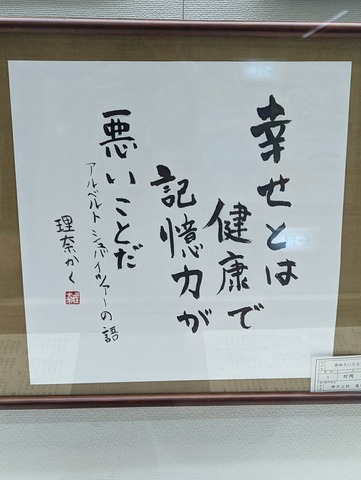 幸せとは
健康で
記憶力が
悪いことだ
アルベルト シュバイツァーの語
理奈かく